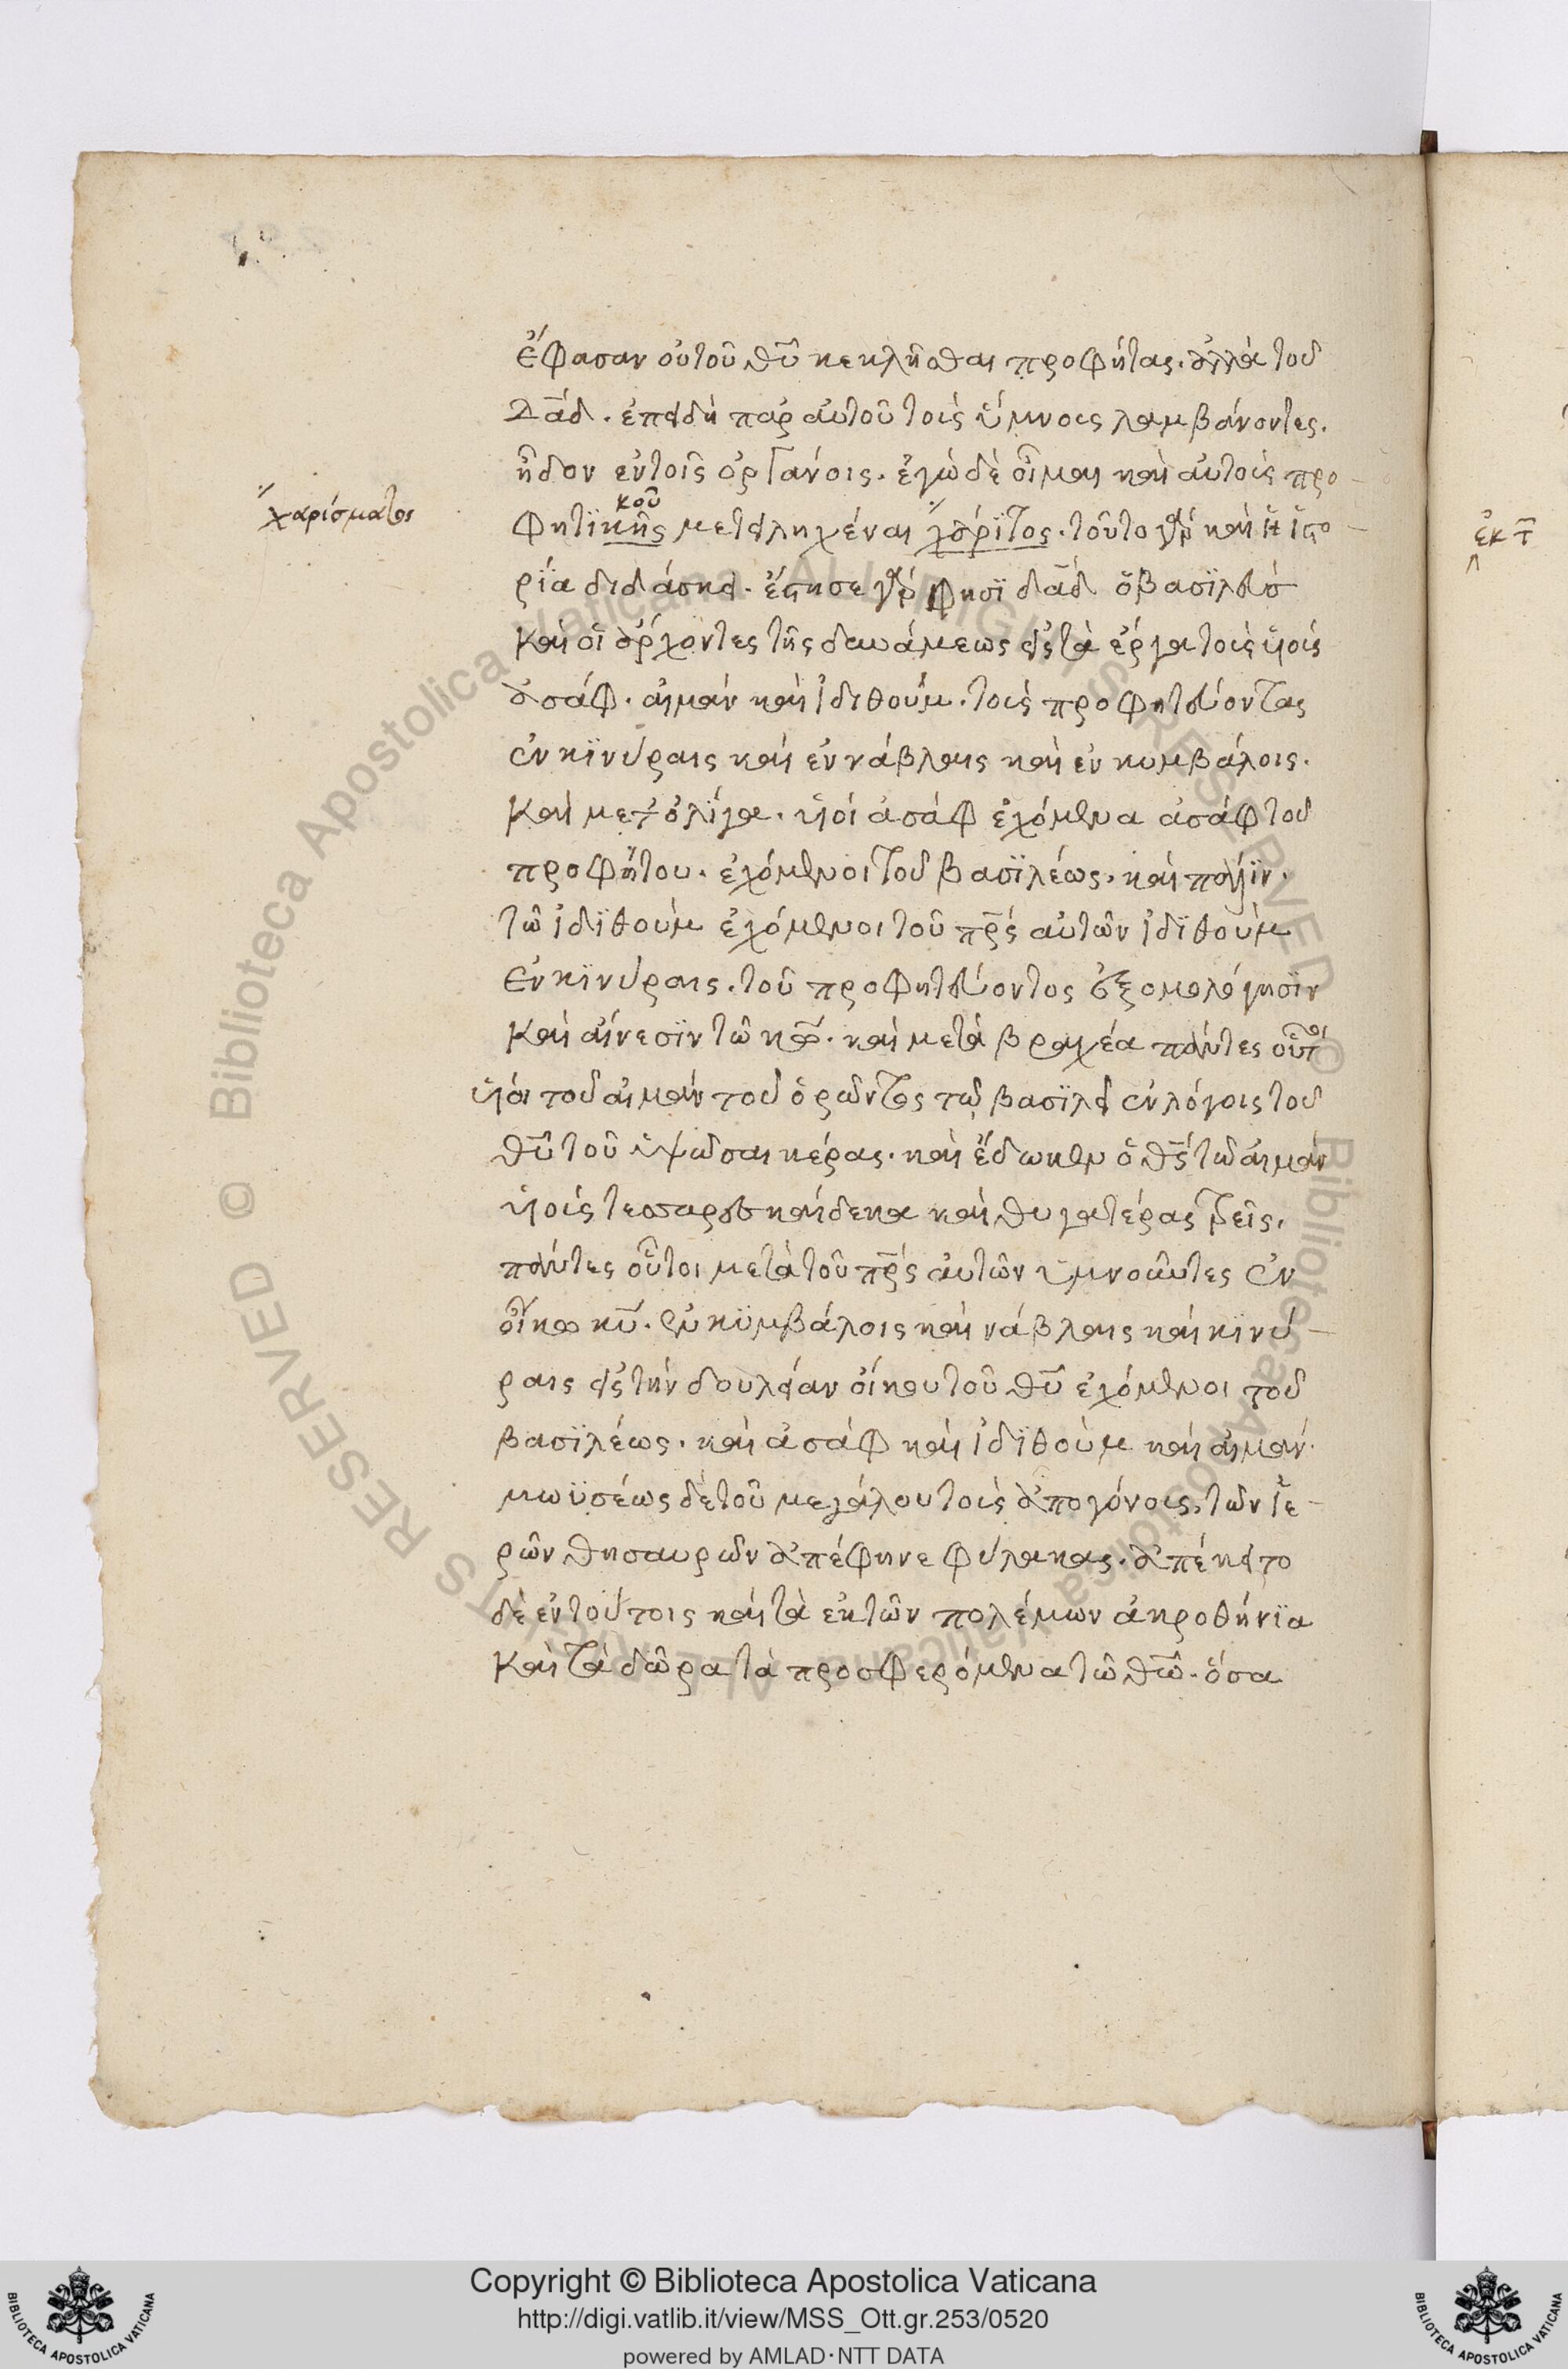 ἔφασαν οὐ τοῦ θῦ κεκλῆσθαι προφήτας. ἀλλὰ τοῦ
δᾱδ. ἐπειδὴ παρ αὐτοῦ τοὺς ὕμνους λαμβάνοντες.
ᾖδον ἐν τοῖς ὀργάνοις. ἐγὼ δὲ οἶμαι καὶ αὐτοὺς προ-
χαρίσματος
κοῦ
φητϊκῆς μετειληχέναι χάρϊτος. τοῦτο γὰρ καὶ ἡ ἱστο-
ρΐα διδάσκει. ἔστησε γὰρ φησὶ δᾱδ ὁ βασϊλεὺς
καὶ οἱ ἄρχοντες τῆς δυνάμεως εἰς τὰ ἔργα τοὺς υἱοὺς
ἀσάφ. αἱμὰν καὶ ἰδιθούμ. τοὺς προφητεύοντας
ἐν κϊνύραις καὶ ἐν νάβλαις καὶ ἐν κυμβάλοις.
καὶ μετ' ὀλίγα. υἱοὶ ἀσάφ ἐχόμενα ἀσάφ τοῦ
προφήτου. ἐχόμενοι τοῦ βασϊλέως. καὶ πάλϊν.
τῶ ἰδϊθούμ ἐχόμενοι τοῦ πρ̄ς αὐτῶν ἰδϊθούμ
ἐν κϊνύραις. τοῦ προφητεύοντος ἐξομολόγησϊν
καὶ αἴνεσϊν τῶ κω̄. καὶ μετὰ βραχέα πάντες οὗτοι
υἱοὶ τοῦ αἱμὰν τοῦ ὁρῶντος τῷ βασϊλεῖ ἐν λόγοις τοῦ
θῦ τοῦ ὑψῶσαι κέρας. καὶ ἔδωκεν ὁ θς̄ τῶ αἱμὰν
υἱοὺς τεσσαρεσκαίδεκα καὶ θυγατέρας τρεῖς.
πάντες οὗτοι μετὰ τοῦ πρ̄ς αὐτῶν ὑμνοῦντες ἐν
οἴκω κῡ. ἐν κϋμβάλοις καὶ νάβλαις καὶ κϊνύ-
ραις εἰς τὴν δουλείαν οἴκου τοῦ θῦ ἐχόμενοι τοῦ
βασϊλέως. καὶ ἀσάφ καὶ ἰδϊθούμ καὶ αἱμάν.
μωϋσέως δὲ τοῦ μεγάλου τοὺς ἀπογόνους, τῶν ἱε-
ρῶν θησαυρῶν ἀπέφηνε φύλακας. ἀπέκειτο
δὲ ἐν τούτοις καὶ τὰ ἐκ τῶν πολέμων ἀκροθήνϊα
καὶ τὰ δῶρα τὰ προσφερόμενα τῶ θω̄. ὅσα
ἐκ τ̄
Copyright © Biblioteca Apostolica Vaticana
http://digi.vatlib.it/view/MSS_Ott.gr.253/0520
powered by AMLAD·NTT DATA